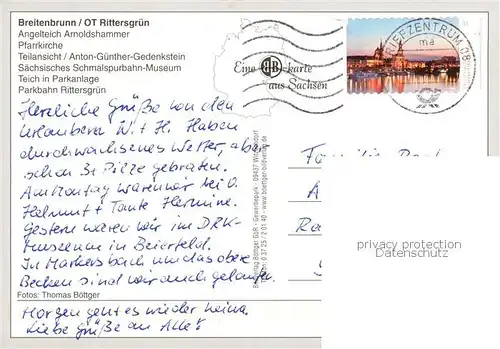 Breitenbrunn / OT Rittersgrün
Angelteich Arnoldshammer
Pfarrkirche
Teilansicht / Anton-Günther-Gedenkstein
Sächsisches Schmalspurbahn-Museum
Teich in Parkanlage
Parkbahn Rittersgrün
Eine karte
aus Sachsen
BRIEFZENTRUM 08
Herzliche Grüße von den
Urlaubern W. + H. Haben
durchwachsenes Wetter, aber
schon 3x Pilze gebraten.
Am Montag waren wir bei O.
Helmut + Tante Hermine.
Gestern waren wir im DRK-
Museum in Beierfeld.
In Markersbach um das obere
Becken sind wir auch gelaufen.
Morgen geht es wieder heim.
Liebe Grüße an Alle!
Fotos: Thomas Böttger
Bildverlag Böttger GbR · Gewerbepark · 09437 Witzschdorf
0 37 25 / 2 01 40 · www.boettger-bildverlag.de
Familie
privacy protection
Datenschutz